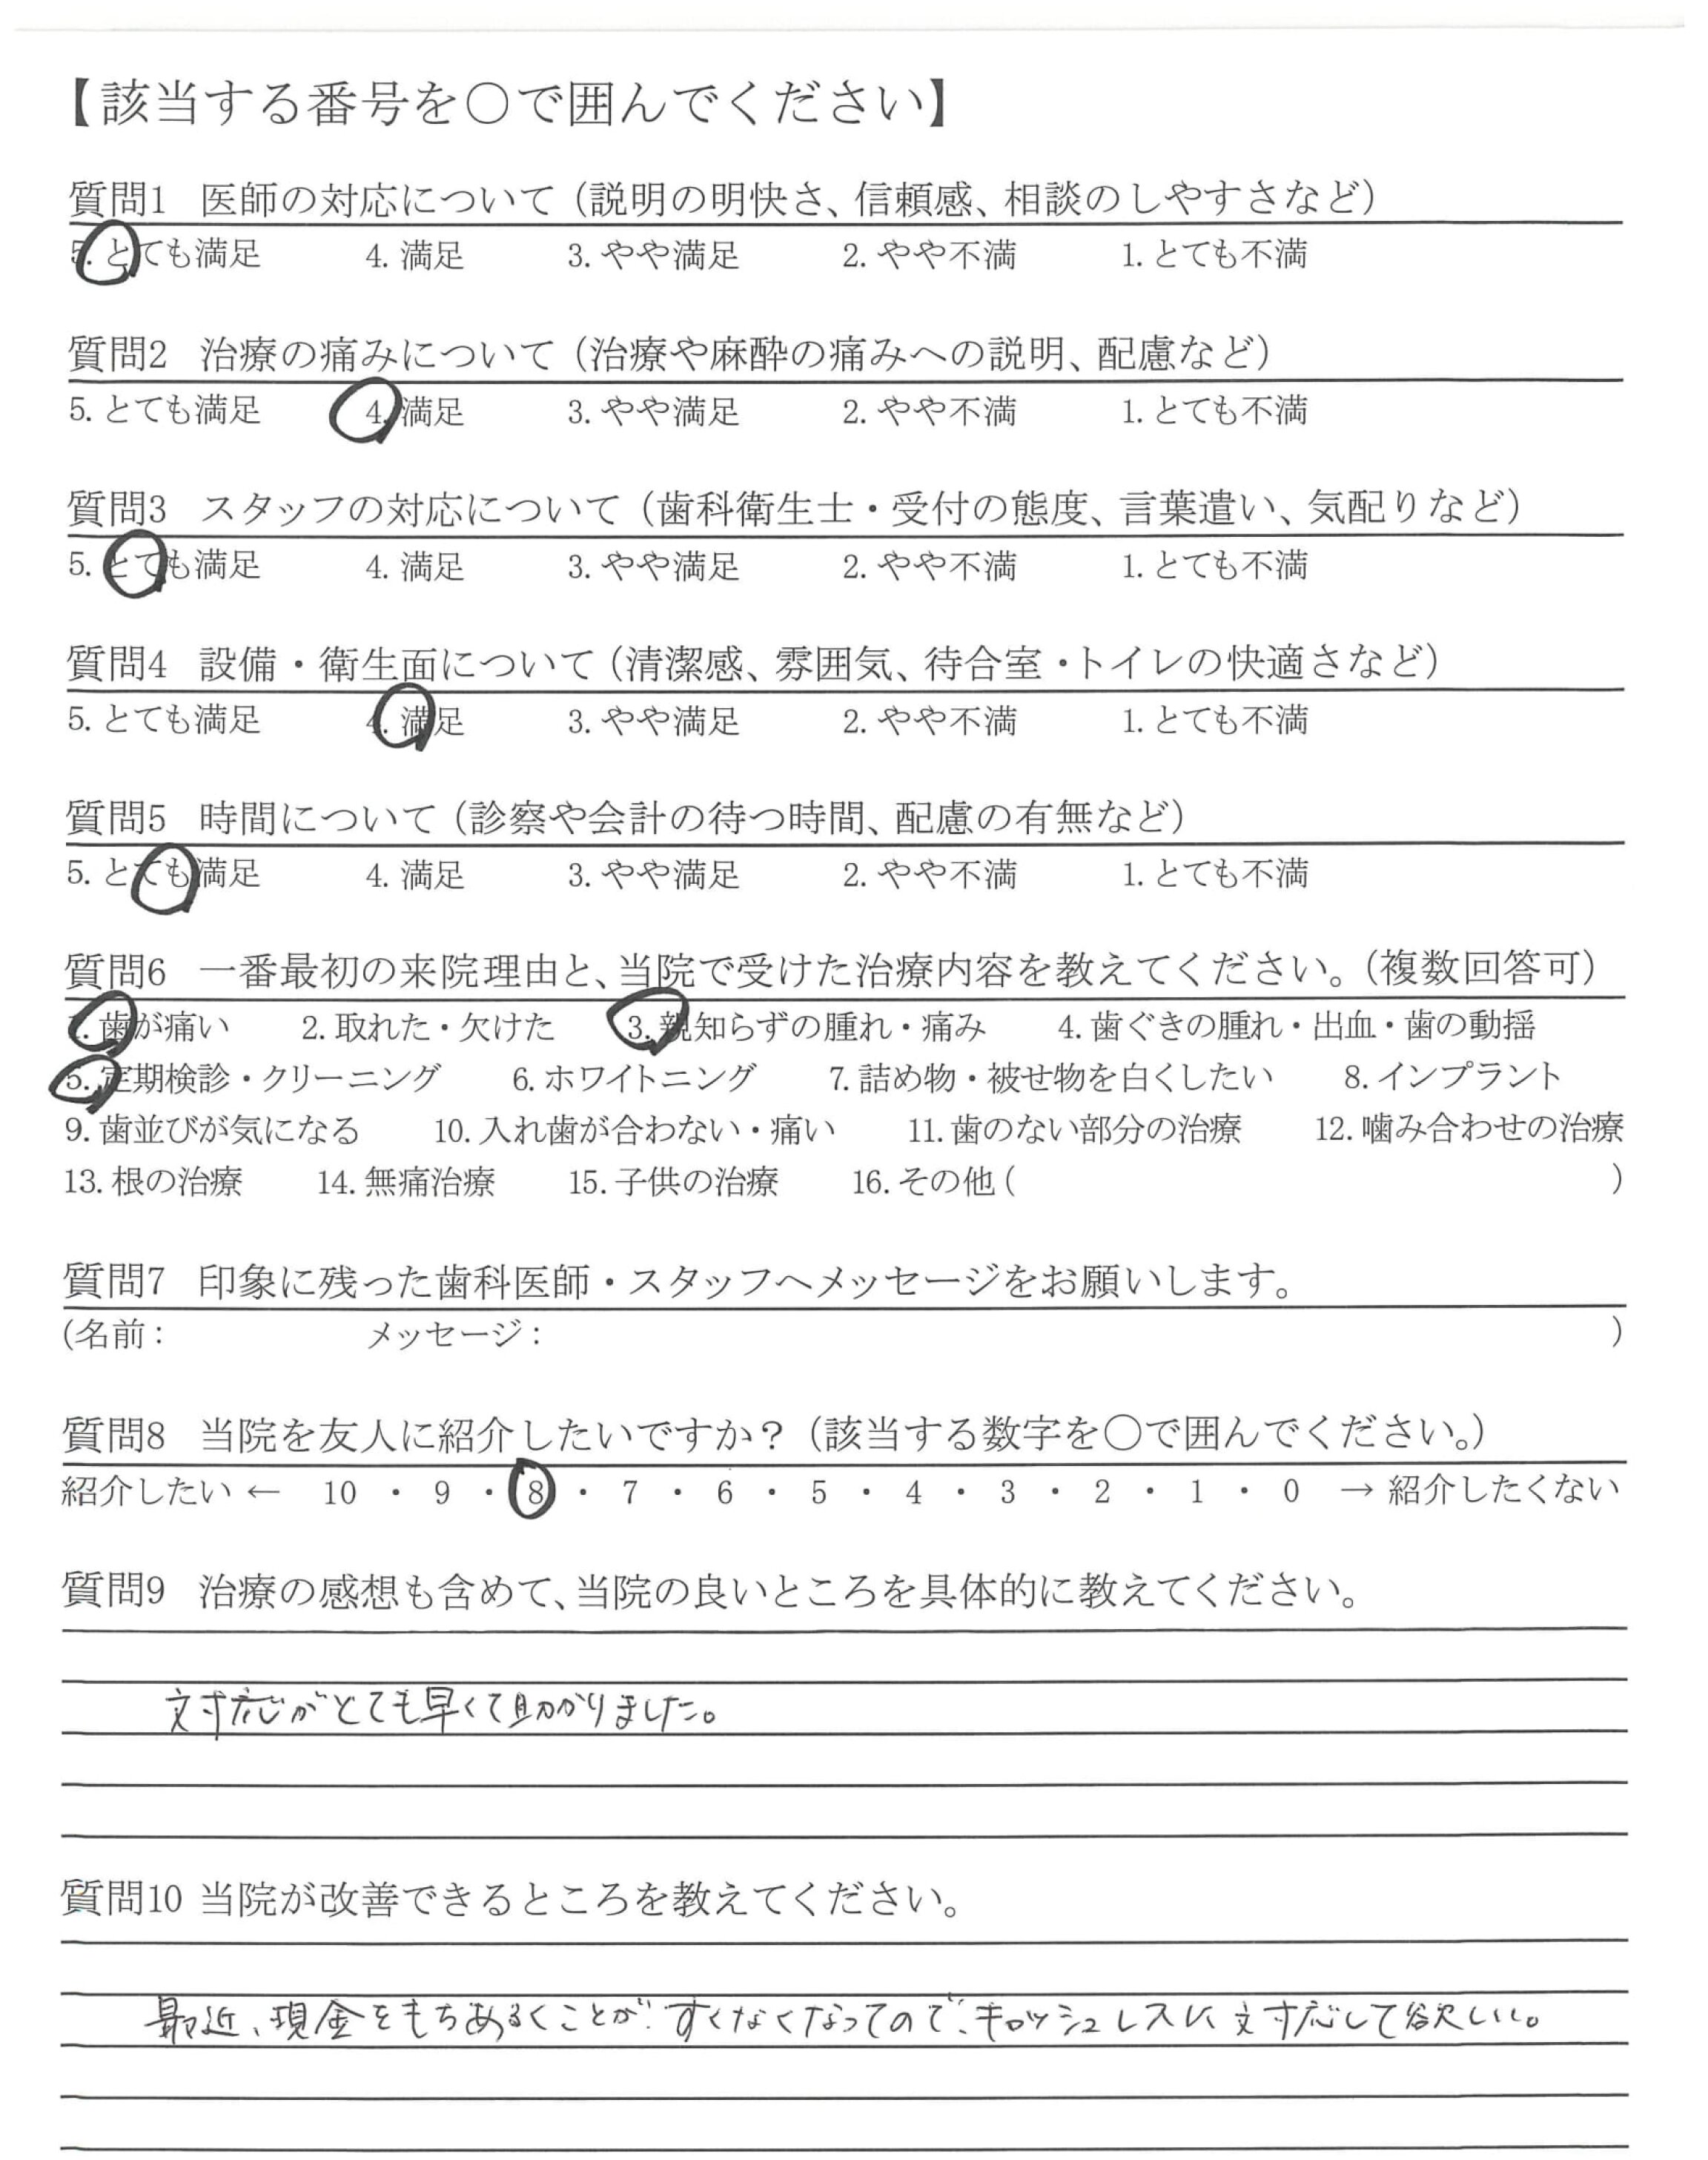 【該当する番号を〇で囲んでください】
質問1 医師の対応について（説明の明快さ、信頼感、相談のしやすさなど）
5. とても満足 4. 満足 3. やや満足 2. やや不満 1. とても不満
質問2 治療の痛みについて（治療や麻酔の痛みへの説明、配慮など）
5. とても満足 4. 満足 3. やや満足 2. やや不満 1. とても不満
質問3 スタッフの対応について（歯科衛生士・受付の態度、言葉遣い、気配りなど）
5. とても満足 4. 満足 3. やや満足 2. やや不満 1. とても不満
質問4 設備・衛生面について（清潔感、雰囲気、待合室・トイレの快適さなど）
5. とても満足 4. 満足 3. やや満足 2. やや不満 1. とても不満
質問5 時間について（診察や会計の待つ時間、配慮の有無など）
5. とても満足 4. 満足 3. やや満足 2. やや不満 1. とても不満
質問6 一番最初の来院理由と、当院で受けた治療内容を教えてください。（複数回答可）
1. 歯が痛い 2. 取れた・欠けた 3. 親知らずの腫れ・痛み 4. 歯ぐきの腫れ・出血・歯の動揺
5. 定期検診・クリーニング 6. ホワイトニング 7. 詰め物・被せ物を白くしたい 8. インプラント
9. 歯並びが気になる 10. 入れ歯が合わない・痛い 11. 歯のない部分の治療 12. 噛み合わせの治療
13. 根の治療 14. 無痛治療 15. 子供の治療 16. その他（ ）
質問7 印象に残った歯科医師・スタッフへメッセージをお願いします。
（名前： メッセージ： ）
質問8 当院を友人に紹介したいですか？（該当する数字を〇で囲んでください。）
紹介したい ← 10 ・ 9 ・ 8 ・ 7 ・ 6 ・ 5 ・ 4 ・ 3 ・ 2 ・ 1 ・ 0 → 紹介したくない
質問9 治療の感想も含めて、当院の良いところを具体的に教えてください。
対応がとても早くて助かりました。
質問10 当院が改善できるところを教えてください。
最近、現金をもちあるくことが、すくなくなってので、キャッシュレスに対応して欲しい。